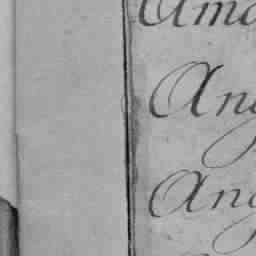 Ama
Ang
Ang